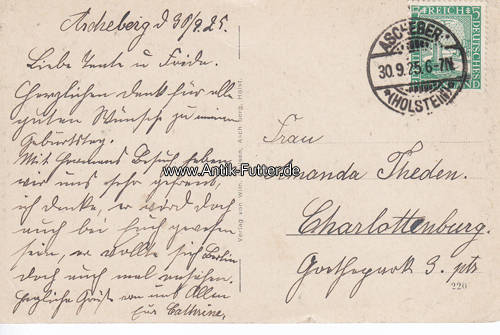 Ascheberg d 30/9.25.
Liebe Tante u Frida.
Herzlichen Dank für alle
guten Wünsche zu meinem
Geburtstag.
Mit Hermanns Besuch haben
wir uns sehr gefreut,
ich denke, er wird doch
auch bei Euch gewesen
sein, er wollte sich Berlin
doch auch mal ansehen.
Herzliche Grüße von uns Allen
Eure Cathrine.
Verlag von Wilh.
ASCHEBERG
30.9.25.6-7N.
*(HOLSTEIN)
DEUTSCHES REICH
5
Frau
Amanda Theden.
Charlottenburg.
Goethepark 3. pts
220
www.Antik-Futter.de